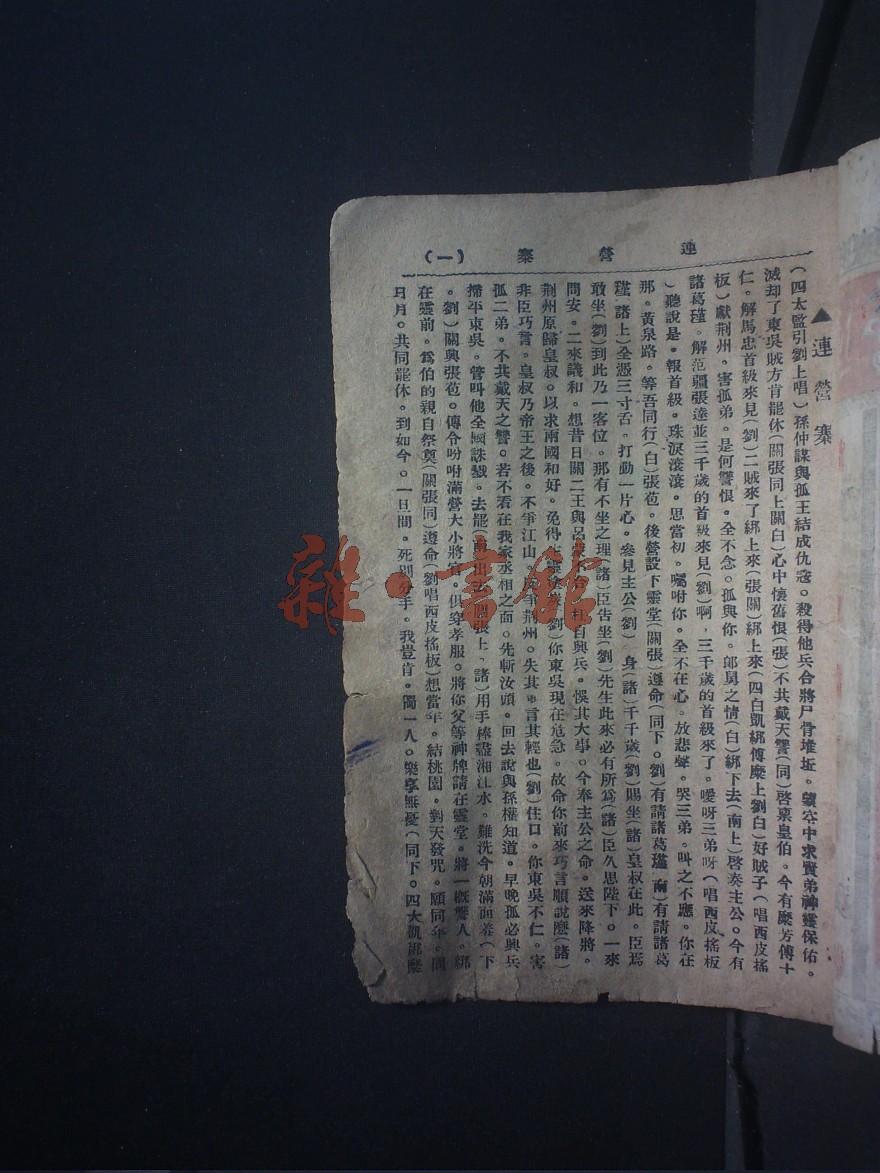 連營寨 (一)
▲連營寨
(四太監引劉上唱)孫仲謀與孤王結成仇寇。殺得他兵合將尸骨堆坵。望空中求賢弟神靈保佑。
滅却了東吳賊方肯罷休(關張同上關白)心中懷舊恨(張)不共戴天讐(同)啓禀皇伯。今有糜芳傅士
仁。解馬忠首級來見(劉)二賊來了綁上來(張關)綁上來(四白凱綁傅糜上劉白)好賊子(唱西皮搖
板)獻荆州。害孤弟。是何讐恨。全不念。孤與你。郎舅之情(白)綁下去(南上)啓奏主公。今有
諸葛瑾。解范疆張達並三千歲的首級來見(劉)啊,三千歲的首級來了。噯呀三弟呀(唱西皮搖板
)聽說是。報首級。珠淚滚滚。思當初。囑咐你。全不在心。放悲聲。哭三弟。叫之不應。你在
那。黃泉路。等吾同行(白)張苞。後營設下靈堂(關張)遵命(同下。劉)有請諸葛瑾(南)有請諸葛
瑾(諸上)全憑三寸舌。打動一片心。參見主公(劉) 身(諸)千千歲(劉)賜坐(諸)皇叔在此。臣焉
敢坐(劉)到此乃一客位。那有不坐之理(諸)臣告坐(劉)先生此來必有所爲(諸)臣久思陛下。一來
問安。二來議和。想昔日關二王與呂蒙不合。 自興兵。悞其大事。今奉主公之命。送來降將。
荆州原歸皇叔。以求兩國和好。免得 (劉)你東吳現在危急。故命你前來巧言順說麼(諸)
非臣巧言。皇叔乃帝王之後。不爭江山。 爭荆州。失其 言其輕也(劉)住口。你東吳不仁。害
孤二弟。不共戴天之讐。若不看在我家丞相之面。先斬汝頭。回去說與孫權知道。早晚孤必興兵
掃平東吳。管叫他全國誅戮。去罷( 張上,諸)用手棒盡湘江水。難洗今朝滿面羞(下
。劉)關興張苞。傳令吩咐滿營大小將官。俱穿孝服。將你父等神牌請在靈堂。將一概讐人。綁
在靈前。爲伯的親自祭奠(關張同)遵命(劉唱西皮搖板)想當年。結桃園。對天發咒。願同年。同
日月。共同罷休。到如今。一旦間。死別分手。我豈肯。獨一人。樂享無憂(同下。四大凱綁糜
雜·書館